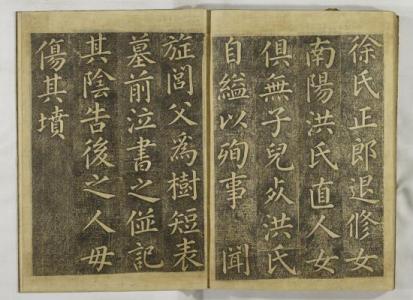 徐氏正郎退修女
南陽洪氏直人女
俱無子兒㱡洪氏
自縊以殉事 聞
旌閭父爲樹短表
墓前泣書之並記
其陰告後之人毋
傷其墳